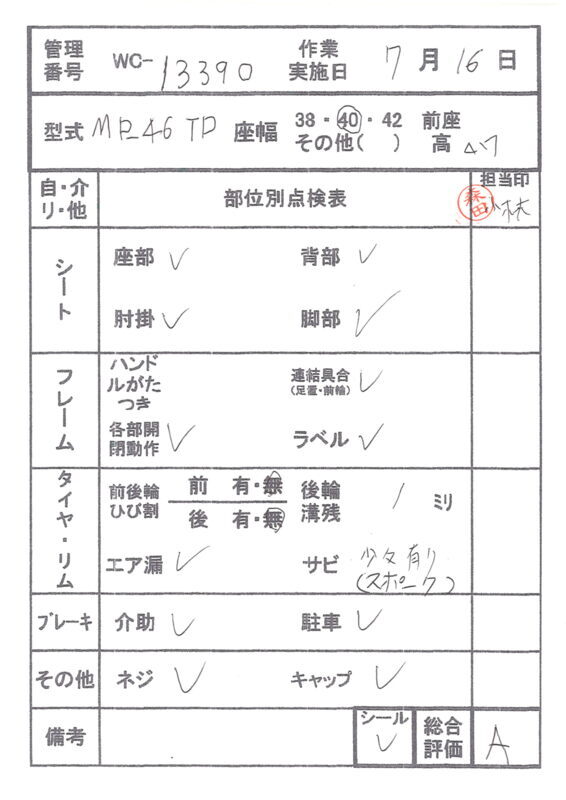 管理番号 WC-13390 作業実施日 7月16日
型式 座幅 38・40・42 その他( ) 前座高
自・介リ・他 部位別点検表 担当印
森田 小林
シート 座部 ✓ 背部 ✓
肘掛 ✓ 脚部 ✓
フレーム ハンドルがたつき 連結具合(足置・前輪) ✓
各部開閉動作 ✓ ラベル ✓
タイヤ・リム 前後輪ひび割 前 有・無 後輪溝残 1 ミリ
後 有・無
エア漏 ✓ サビ 少々有り
(スポーク)
ブレーキ 介助 ✓ 駐車 ✓
その他 ネジ ✓ キャップ ✓
備考 シール ✓ 総合評価 A